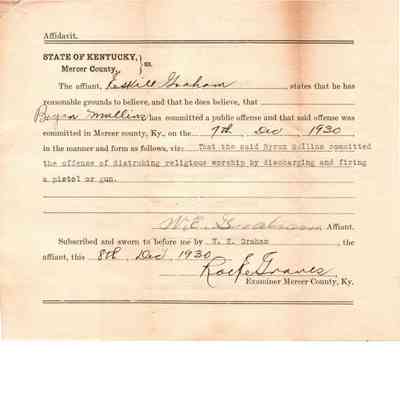 Affidavit.
STATE OF KENTUCKY,
Mercer County, } ss.
The affiant, Eskill Graham states that he has
reasonable grounds to believe, and that he does believe, that
Byron Mullins has committed a public offense and that said offense was
committed in Mercer county, Ky., on the 7th Dec 1930,
in the manner and form as follows, viz: That the said Byron Mullins committed
the offense of distrubing religious worship by discharging and firing
a pistol or gun.
W.E. Graham Affiant.
Subscribed and sworn to before me by W. E. Graham, the
affiant, this 8th Dec 1930
Graves
Examiner Mercer County, Ky.